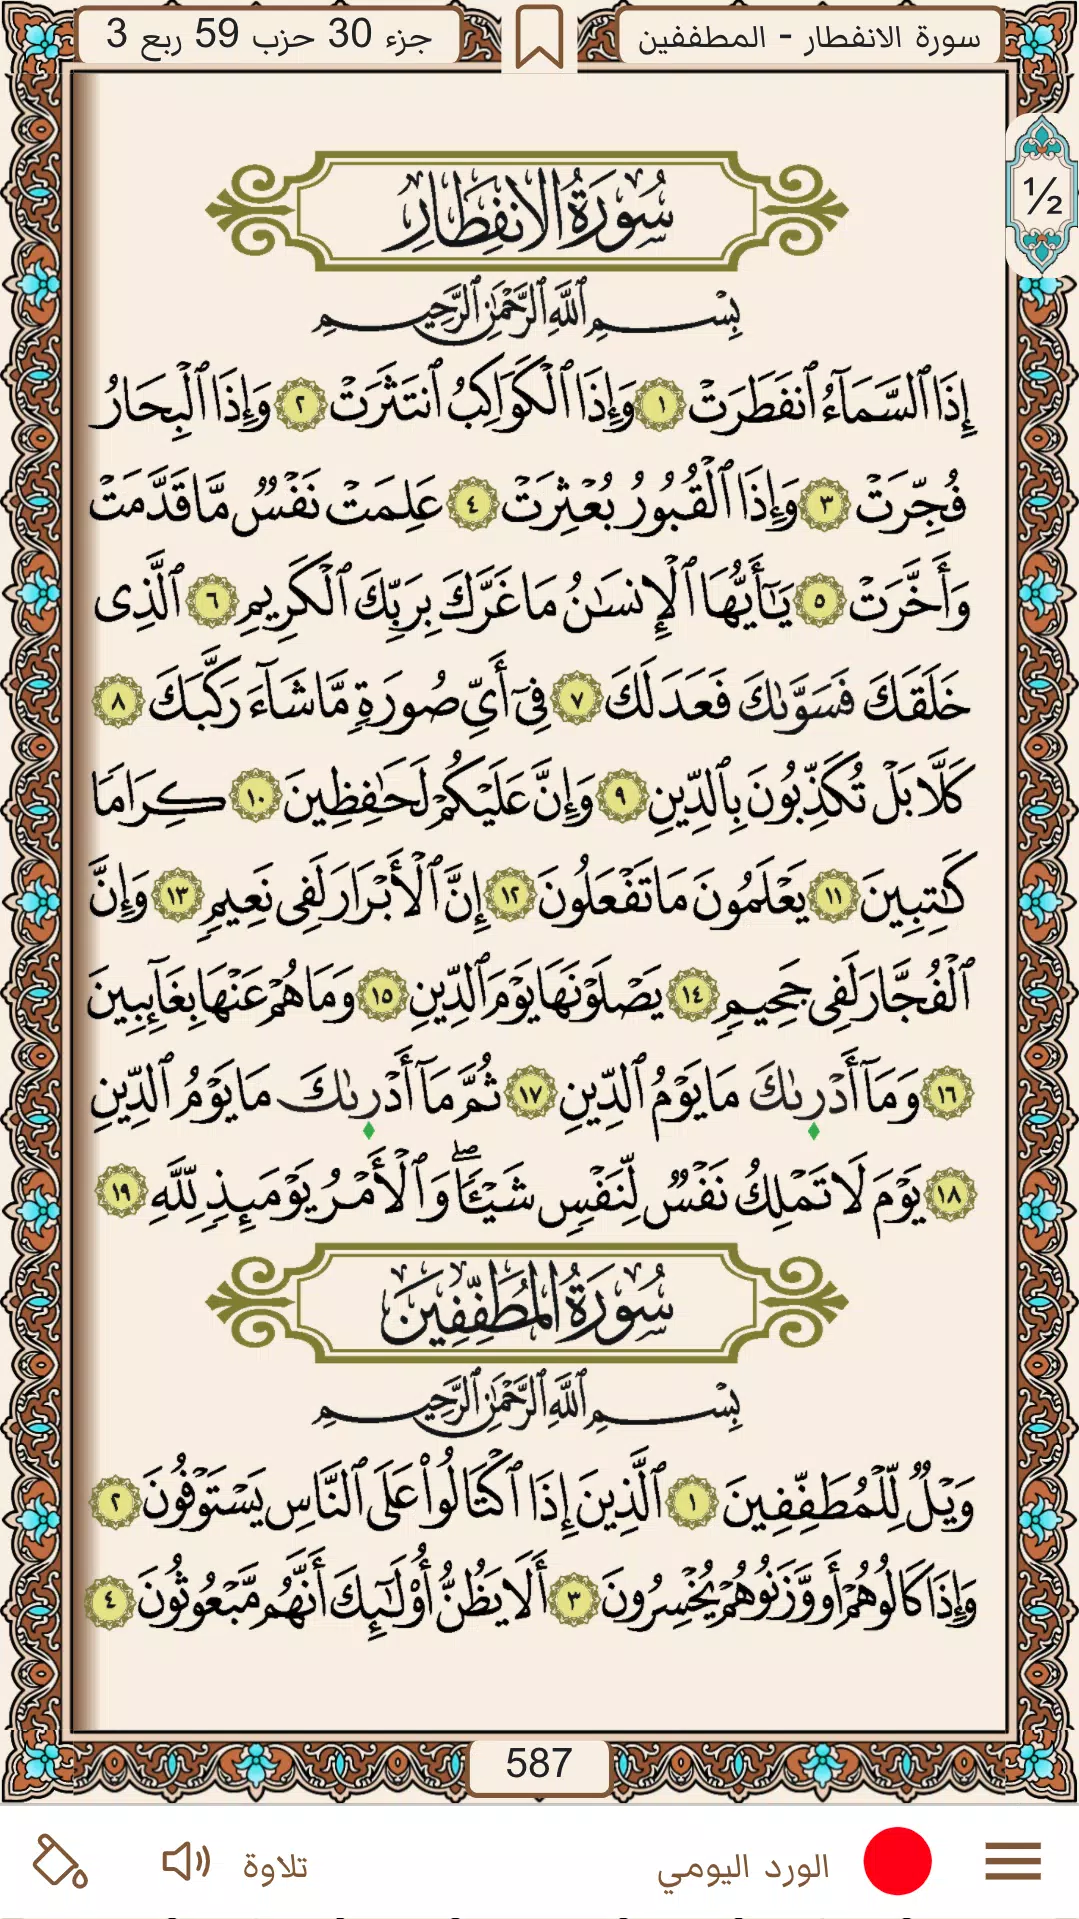 سورة الانفطار - المطففين
جزء 30 حزب 59 ربع 3
½
سُورَةُ الِانفِطَارِ
بِسْمِ ٱللَّهِ ٱلرَّحْمَٰنِ ٱلرَّحِيمِ
إِذَا ٱلسَّمَآءُ ٱنفَطَرَتْ ١ وَإِذَا ٱلْكَوَاكِبُ ٱنتَثَرَتْ ٢ وَإِذَا ٱلْبِحَارُ
فُجِّرَتْ ٣ وَإِذَا ٱلْقُبُورُ بُعْثِرَتْ ٤ عَلِمَتْ نَفْسٌ مَّا قَدَّمَتْ
وَأَخَّرَتْ ٥ يَٰٓأَيُّهَا ٱلْإِنسَٰنُ مَا غَرَّكَ بِرَبِّكَ ٱلْكَرِيمِ ٦ ٱلَّذِى
خَلَقَكَ فَسَوَّىٰكَ فَعَدَلَكَ ٧ فِىٓ أَىِّ صُورَةٍ مَّا شَآءَ رَكَّبَكَ ٨
كَلَّا بَلْ تُكَذِّبُونَ بِٱلدِّينِ ٩ وَإِنَّ عَلَيْكُمْ لَحَٰفِظِينَ ١٠ كِرَامًا
كَٰتِبِينَ ١١ يَعْلَمُونَ مَا تَفْعَلُونَ ١٢ إِنَّ ٱلْأَبْرَارَ لَفِى نَعِيمٍ ١٣ وَإِنَّ
ٱلْفُجَّارَ لَفِى جَحِيمٍ ١٤ يَصْلَوْنَهَا يَوْمَ ٱلدِّينِ ١٥ وَمَا هُمْ عَنْهَا بِغَآئِبِينَ
١٦ وَمَآ أَدْرَىٰكَ مَا يَوْمُ ٱلدِّينِ ١٧ ثُمَّ مَآ أَدْرَىٰكَ مَا يَوْمُ ٱلدِّينِ
١٨ يَوْمَ لَا تَمْلِكُ نَفْسٌ لِّنَفْسٍ شَيْـًٔا ۖ وَٱلْأَمْرُ يَوْمَئِذٍ لِّلَّهِ ١٩
سُورَةُ المُطَفِّفِينَ
بِسْمِ ٱللَّهِ ٱلرَّحْمَٰنِ ٱلرَّحِيمِ
وَيْلٌ لِّلْمُطَفِّفِينَ ١ ٱلَّذِينَ إِذَا ٱكْتَالُوا۟ عَلَى ٱلنَّاسِ يَسْتَوْفُونَ ٢
وَإِذَا كَالُوهُمْ أَو وَّزَنُوهُمْ يُخْسِرُونَ ٣ أَلَا يَظُنُّ أُو۟لَٰٓئِكَ أَنَّهُم مَّبْعُوثُونَ ٤
587
الورد اليومي
تلاوة